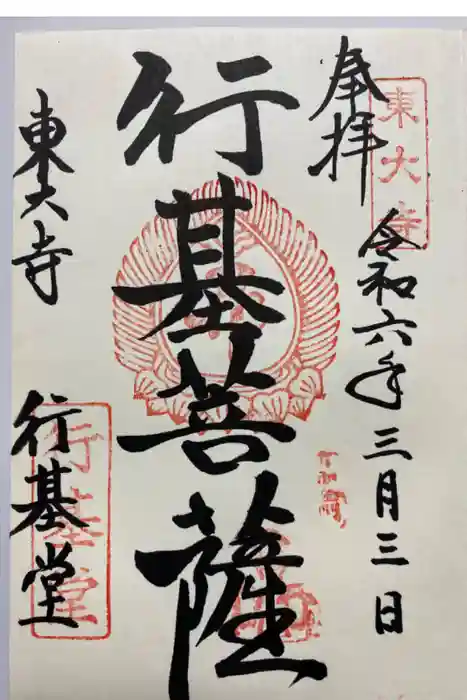 奉拝
東大寺
令和六年三月三日
行基菩薩
東大寺
行基堂
行基堂